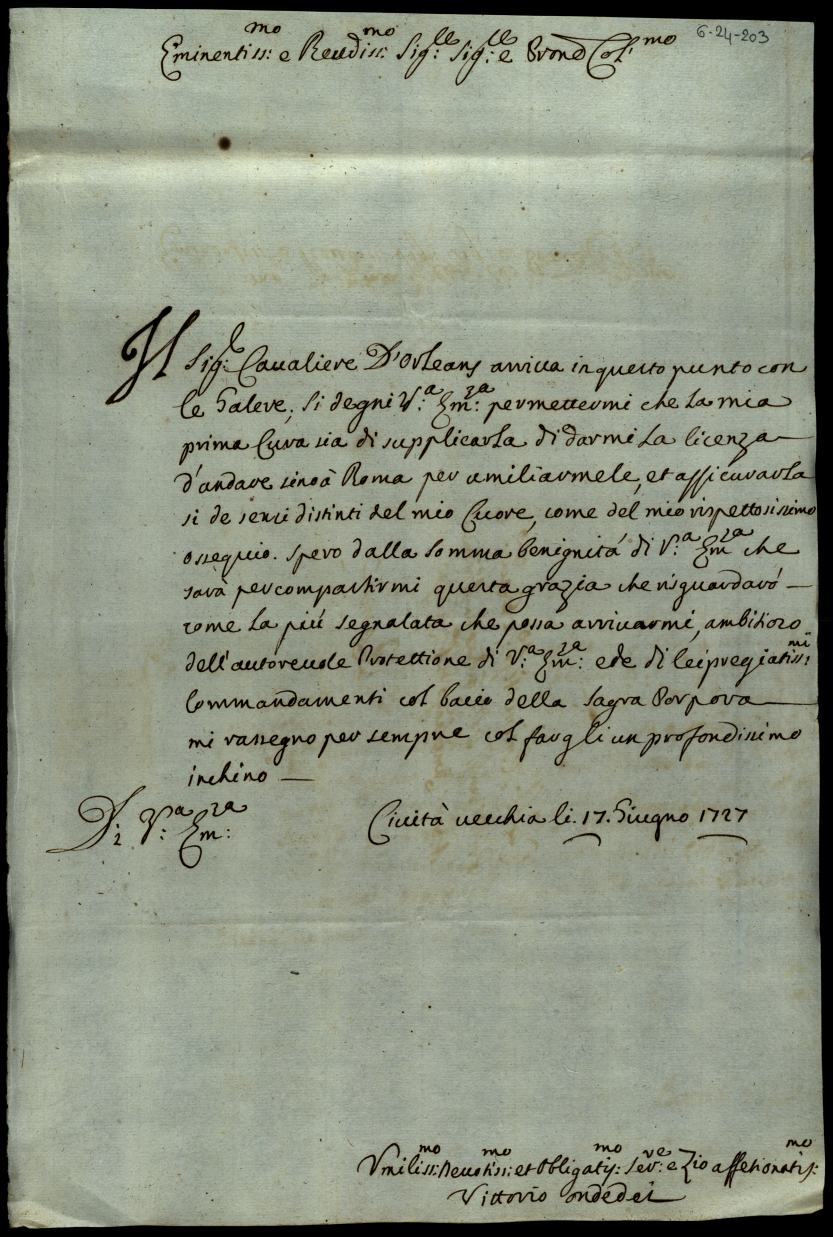 6-24-203
Eminentiss:mo e Reudiss:mo Sig:re Sig:re e Prone Col:mo
Il Sig:r Cavaliere D'Orleans arriva in questo punto con
le Galere, si degni V:a Em:za permettermi che la mia
prima Cura sia di supplicarla di darmi la licenza
d'andare sino à Roma per umiliarmele, et assicurarla
si de sensi distinti del mio Cuore, come del mio rispettosissimo
ossequio. Spero dalla somma benignità di V:a Em:za che
sarà per compartirmi questa grazia che risguardarò
come la più segnalata che possa arrivarmi, ambitioso
dell'autorevole Protettione di V:a Em:za e de di lei pregiatiss:mi
Commandamenti col bacio della Sagra Porpora
mi rassegno per sempre col fargli un profondissimo
inchino
Di V:a Em:za
Cività vecchia li. 17. Giugno 1727
Vmiliss:mo Deuotiss:mo et Obligatis:mo Ser:re e Zio affetionatis:mo
Vittorio ondedei